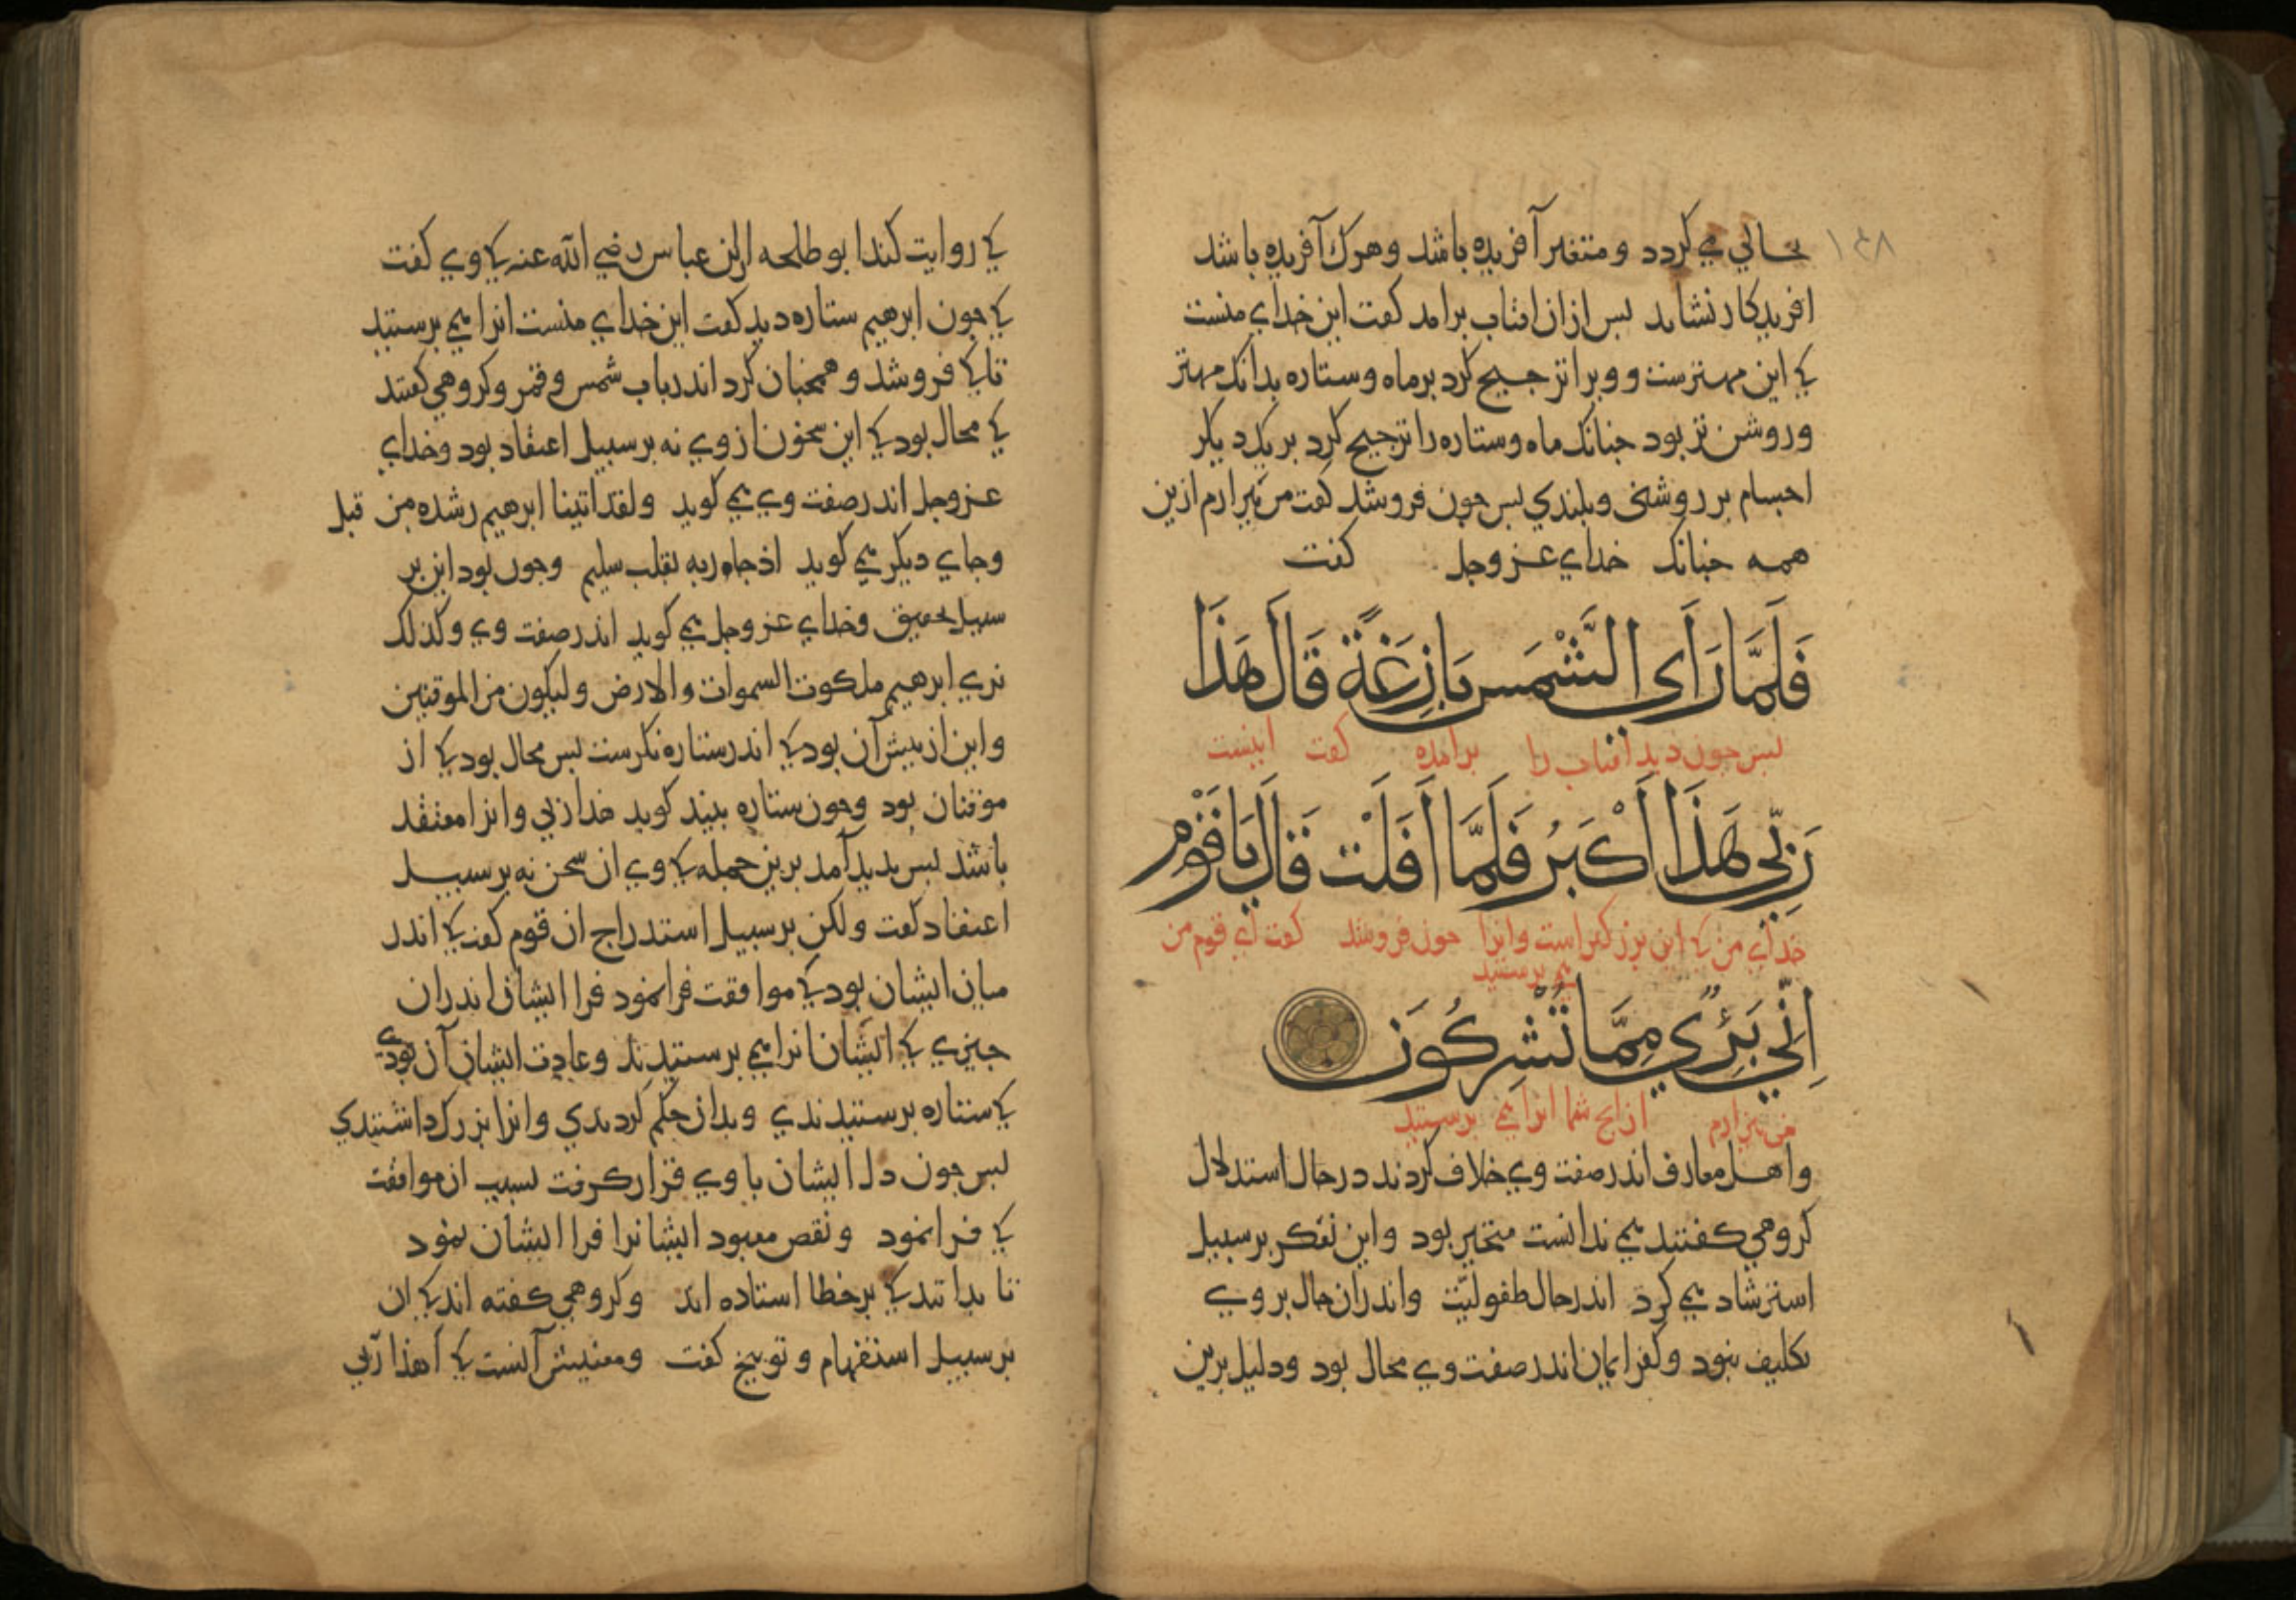 ۱۴۸
بحالي مي كردد و متغير آفريده باشد و هرك آفريده باشد
افريدكار نشايد بس ازان افتاب برامد كفت اين خداي منست
كي اين مهترست و ويرا ترجيح كرد برماه و ستاره بدانك مهتر
و روشن تر بود جنانك ماه و ستاره را ترجيح كرد بر يكديكر
اجسام بر روشني و بلندي بس جون فروشد كفت من بيزارم ازين
همه جنانك خداي عز وجل كفت
فَلَمَّا رَأَى الشَّمْسَ بَازِغَةً قَالَ هَذَا
بس جون ديد افتاب را برامده كفت اينست
رَبِّي هَذَا أَكْبَرُ فَلَمَّا أَفَلَتْ قَالَ يَا قَوْمِ
خداي من كي اين بزركتراست وانرا جون فروشد كفت اي قوم من
مي برستيد
اِنِّي بَرِيءٌ مِمَّا تُشْرِكُونَ
من بيزارم ازانج شما انرا مي برستيد
و اهل معارف اندر صفت وي خلاف كردند در حال استدلال
كروهي كفتند مي ندانست متحير بود و اين تفكر بر سبيل
استرشاد مي كرد اندر حال طفوليّت و اندران حال بر وي
تكليف نبود و كفر ايمان اندر صفت وي محال بود و دليل برين
كي روايت كند ابو طلحه از ابن عباس رضي الله عنه كي وي كفت
كي جون ابرهيم ستاره ديد كفت اين خداي منست انرا مي برستيد
تا كي فروشد و همجنان كرد اندر باب شمس و قمر و كروهي كفتند
كي محال بود كي اين سخون از وي نه بر سبيل اعتقاد بود و خداي
عز وجل اندر صفت وي مي كويد ولقد اتينا ابرهيم رشده من قبل
وجاي ديكر مي كويد اذ جاء ربه بقلب سليم وجون بود اين بر
سبيل تحقيق و خداي عز وجل مي كويد اندر صفت وي وكذلك
نري ابرهيم ملكوت السموات والارض وليكون من الموقنين
و اين از بيش آن بود كي اندر ستاره نكرست بس محال بود كي از
موقنان بود وجون ستاره بيند كويد هذا ربي و انرا معتقد
باشد بس بديد آمد برين جمله كي وي ان سخن نه بر سبيل
اعتقاد كفت ولكن بر سبيل استدراج ان قوم كفت كي اندر
ميان ايشان بود كي موافقت فرا نمود فرا ايشان اندران
جيزي كي ايشان انرا مي برستيدند و عادت ايشان آن بودي
كي ستاره برستيدندي و بدان حكم كردندي و انرا بزرك داشتندي
بس جون دل ايشان با وي قرار كرفت بسبب ان موافقت
كي فرا نمود و نقص معبود ايشانرا فرا ايشان نمود
تا بدانند كي بر خطا استاده اند و كروهي كفته اند كي ان
بر سبيل استفهام و توبيخ كفت و معنيش آنست كي أهذا ربّي